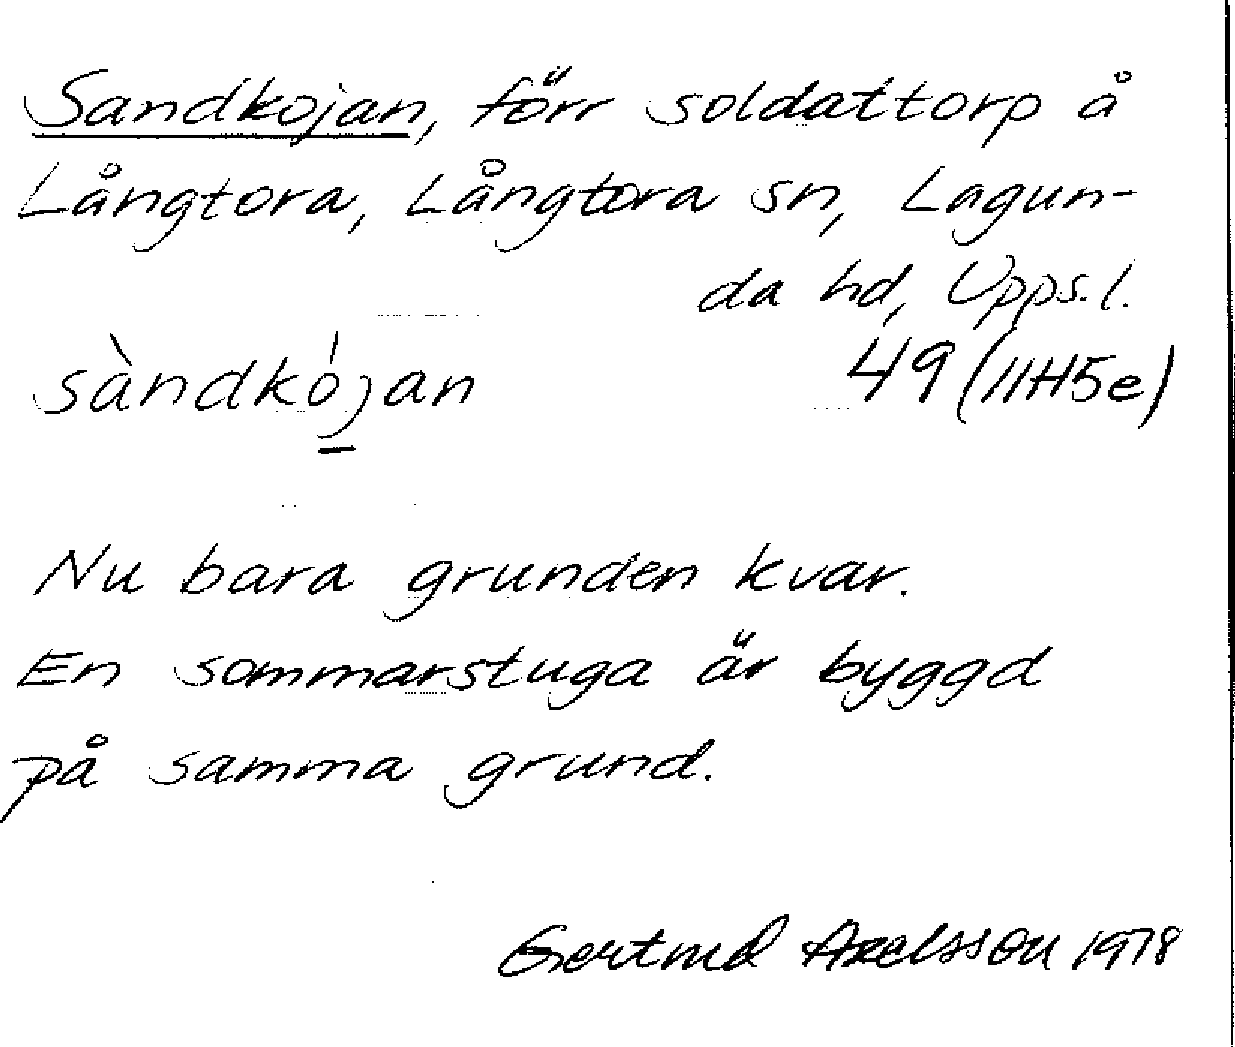 Sandkojan, förr soldattorp å
Långtora, Långtora sn, Lagun-
da hd, Upps. l.
sàndkójan 49 (11H5e)
Nu bara grunden kvar.
En sommarstuga är byggd
på samma grund.
Gertrud Axelsson 1978